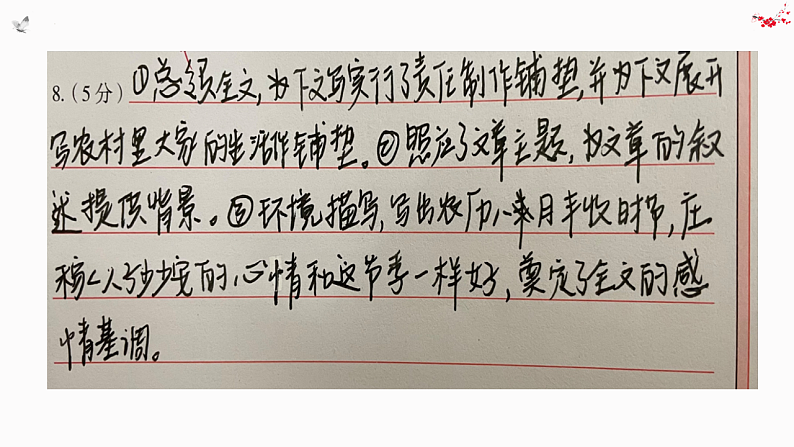 8.(5分) ①总领全文,为下文写实行了责任制作铺垫,并为下文展开
写农村里大家的生活作铺垫。②照应了文章主题,为文章的叙
述提供背景。③环境描写,写出农历八月丰收时节,庄
稼人的心情和这节季一样好,奠定了全文的感
情基调。